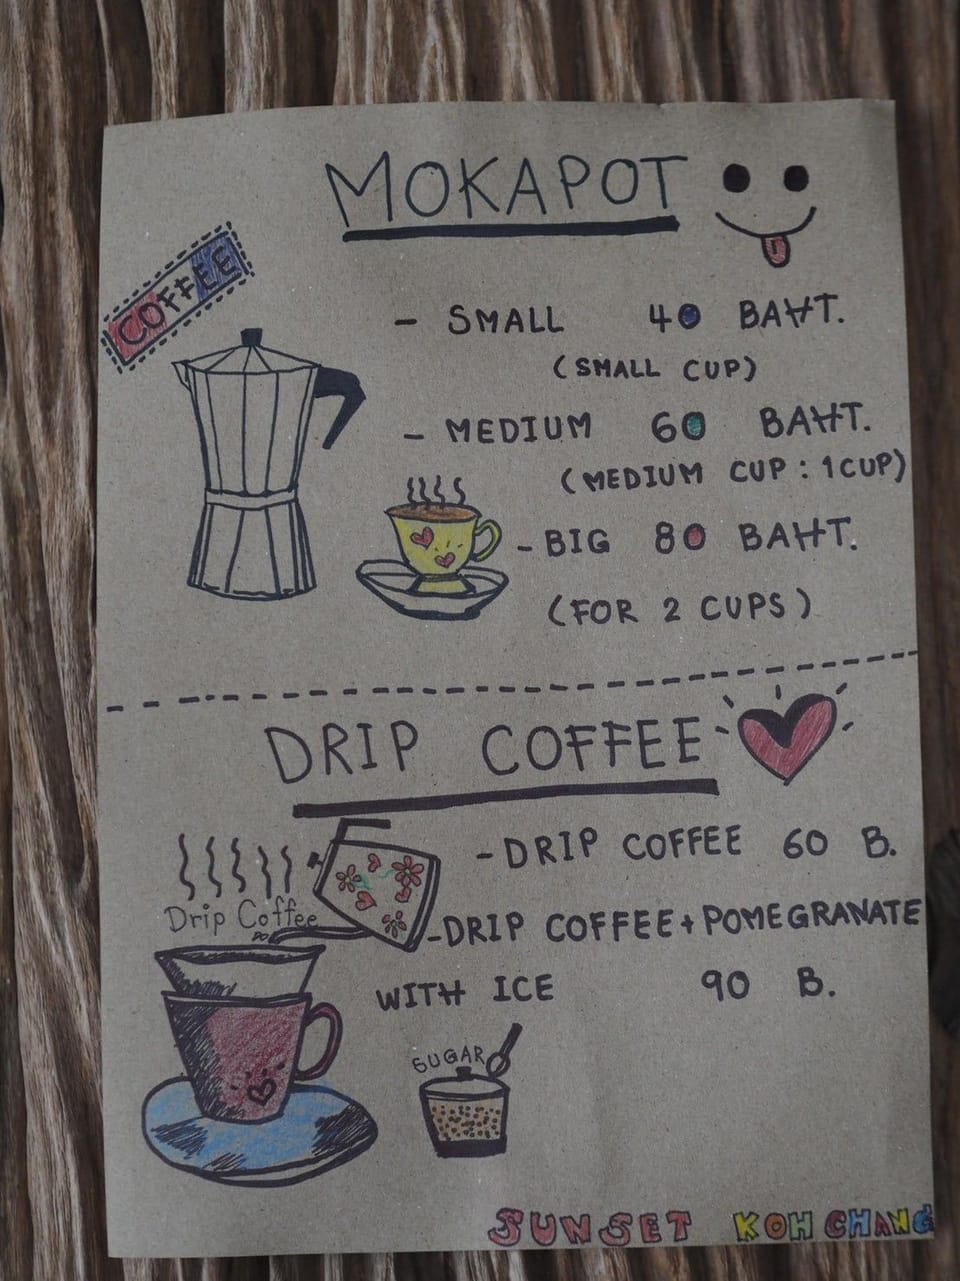 MOKAPOT
COFFEE
- SMALL 40 BAHT.
(SMALL CUP)
- MEDIUM 60 BAHT.
(MEDIUM CUP : 1CUP)
- BIG 80 BAHT.
(FOR 2 CUPS)
DRIP COFFEE
- DRIP COFFEE 60 B.
Drip Coffee
- DRIP COFFEE + POMEGRANATE
WITH ICE 90 B.
SUGAR
SUNSET KOH CHANG